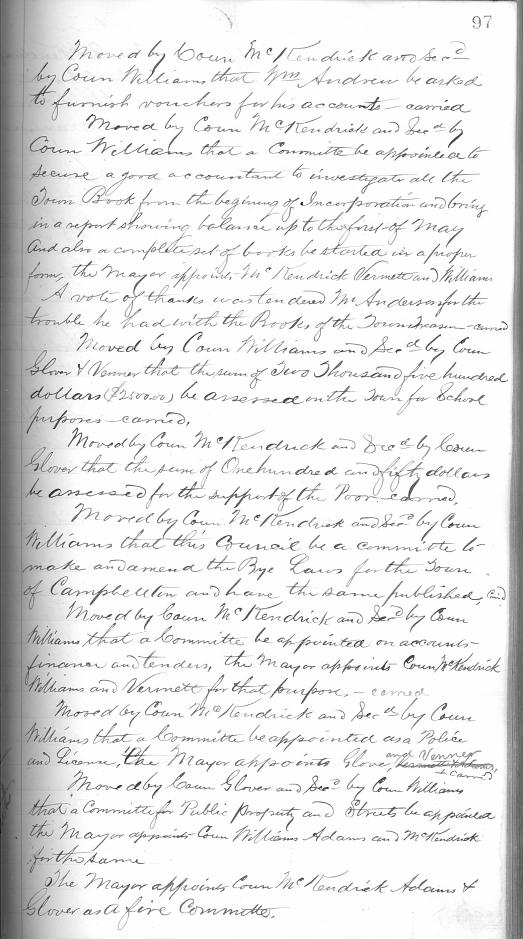 97
Moved by Coun McKendrick and Secd
by Coun Williams that Wm Andrew be asked
to furnish vouchers for his accounts – carried
Moved by Coun McKendrick and Secd by
Coun Williams that a Committe be appointed to
secure a good accountant to investigate all the
Town Book from the begining of Incorporation and bring
in a report showing balance up to the first of May
And also a complete set of books be started in a proper
form, the Mayor appoints McKendrick Vermett and Williams
A vote of thanks was tendered Mr Anderson for the
trouble he had with the Books of the Town Treasr – carried
Moved by Coun Williams and Secd by Coun
Glover & Venner that the sum of Two Thousand five hundred
dollars ($2500.00) be assessed on the Town for School
purposes – carried.
Moved by Coun McKendrick and Secd by Coun
Glover that the sum of One hundred and fifty dollars
be assessed for the support of the Poor – carried.
Moved by Coun McKendrick and Secd by Coun
Williams that this Council be a committe to
make and amend the Bye Laws for the Town
of Campbellton and have the same published, Card
Moved by Coun McKendrick and Secd by Coun
Williams that a Committe be appointed on accounts
finance and tenders, the Mayor appoints Coun McKendrick
Williams and Vermett for that purpose, – carried
Moved by Coun McKendrick and Secd by Coun
Williams that a Committe be appointed as a Police
and License, the Mayor appoints Glover, and Venner
+ carrd
Moved by Coun Glover and Secd by Coun Williams
that a Committe for Public Property and Streets be appointed
the Mayor appoints Coun Williams Adams and McKendrick
for the same
The Mayor appoints Coun McKendrick Adams &
Glover as a fire Committe.